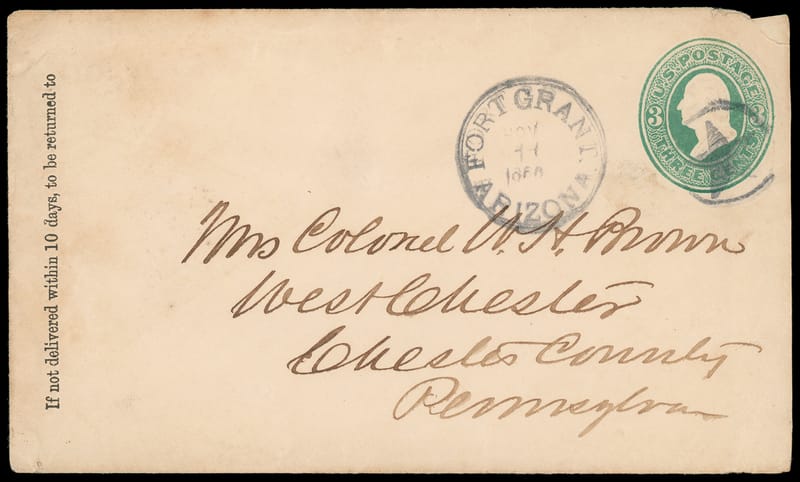 If not delivered within 10 days, to be returned to
FORT GRANT.
NOV
11
ARIZONA
U.S. POSTAGE
3 3
THREE CENTS
Mrs Colonel W. H. Brown
West Chester
Chester County
Pennsylvan